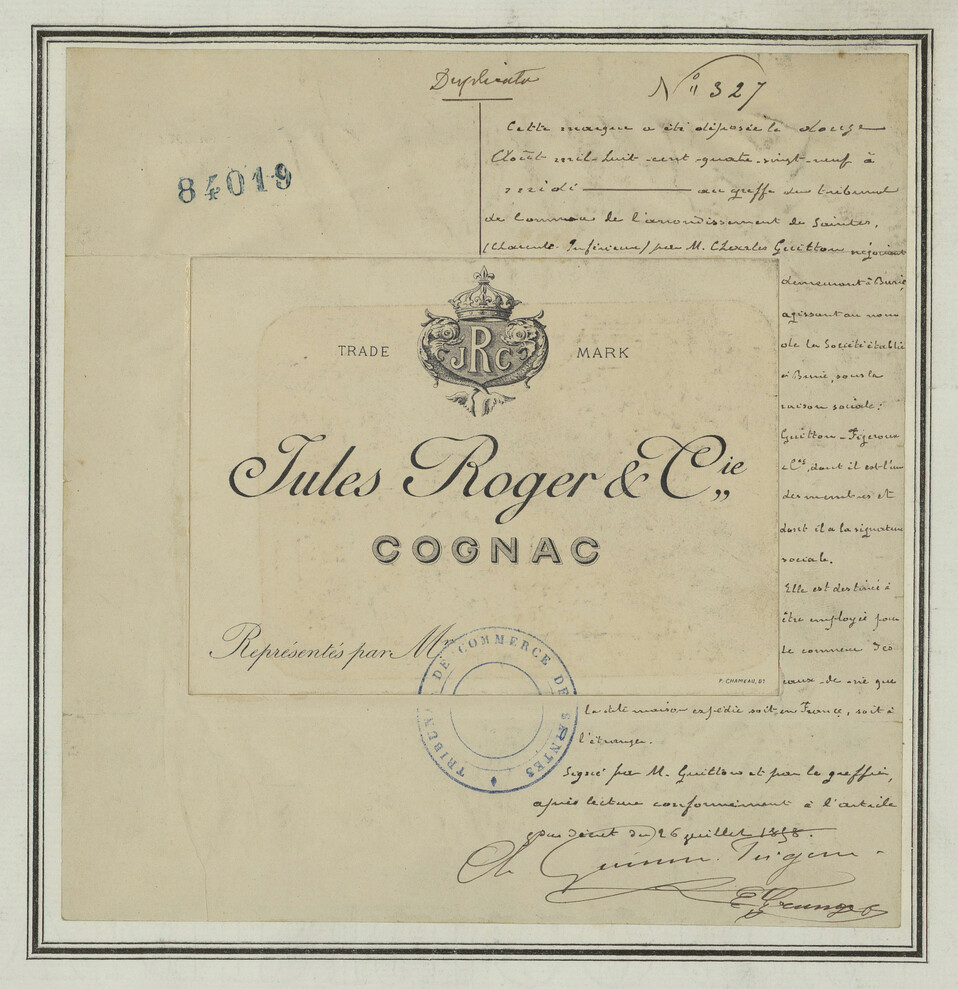 Duplicata
N° 327
84019
Cette marque a été déposée le douze
Août mil-huit-cent-quatre-vingt-neuf à
midi au greffe du tribunal
de Commerce de l'arrondissement de Saintes,
(Charente-Inférieure) par M. Charles Guitton négociant
demeurant à Burie,
agissant au nom
de la Société établie
à Burie, sous la
raison sociale:
Guitton-Figerou
& Cie, dont il est l'un
des membres et
dont il a la signature
sociale.
Elle est destinée à
être employée pour
le commerce des
eaux-de-vie que
la dite maison expédie soit en France, soit à
l'étranger.
Signé par M. Guitton et par le greffier,
après lecture conformément à l'article
du décret du 26 juillet 1858.
TRADE MARK
JRC
Jules Roger & Cie
COGNAC
Représentés par Mr
F. CHAMEAU, Bx
TRIBUNAL DE COMMERCE DE SAINTES